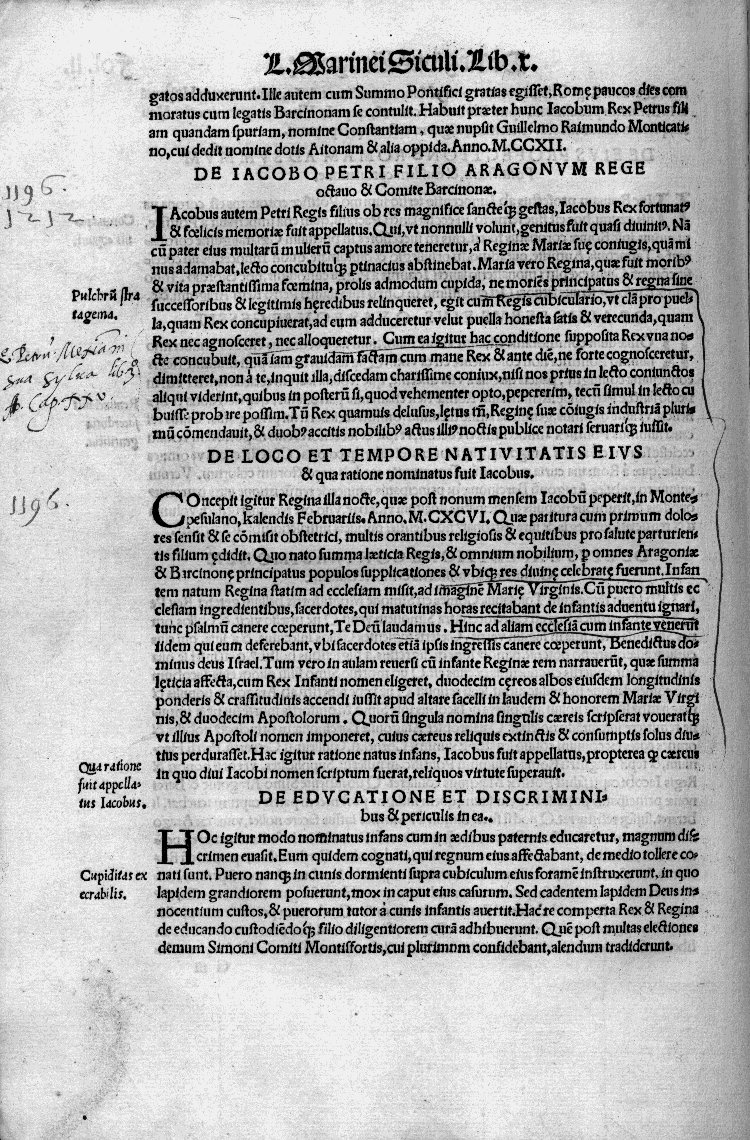 L. Marinei Siculi. Lib. x.
gatos adduxerunt. Ille autem cum Summo Pontifici gratias egisset, Romę paucos dies com
moratus cum legatis Barcinonam se contulit. Habuit præter hunc Iacobum Rex Petrus fili
am quandam spuriam, nomine Constantiam, quæ nupsit Guillelmo Raimundo Monticati-
no, cui dedit nomine dotis Aitonam & alia oppida. Anno. M.CCXII.
DE IACOBO PETRI FILIO ARAGONVM REGE
octauo & Comite Barcinonæ.
IAcobus autem Petri Regis filius ob res magnifice sancteq́; gestas, Iacobus Rex fortunatꝰ
& fœlicis memoriæ fuit appellatus. Qui, vt nonnulli volunt, genitus fuit quasi diuinitꝰ. Nã
cũ pater eius multarũ mulierũ captus amore teneretur, a Reginæ Mariæ suę coniugis, quã mi
nus adamabat, lecto concubituq́; ptinacius abstinebat. Maria vero Regina, quæ fuit moribꝰ
& vita præstantissima fœmina, prolis admodum cupida, ne moriẽs principatus & regna sine
successoribus & legitimis hęredibus relinqueret, egit cum Regis cubiculario, vt clã pro puel-
la, quam Rex concupiuerat, ad eum adduceretur velut puella honesta satis & verecunda, quam
Rex nec agnosceret, nec alloqueretur. Cum ea igitur hac conditione supposita Rex vna no-
cte concubuit, quã iam grauidam factam cum mane Rex & ante diẽ, ne forte cognosceretur,
dimitteret, non à te, inquit illa, discedam charissime coniux, nisi nos prius in lecto coniunctos
aliqui viderint, quibus in posterũ si, quod vehementer opto, pepererim, tecũ simul in lecto cu
buisse probare possim. Tũ Rex quamuis delusus, lętus tñ, Reginę suæ cõiugis industriã pluri-
mũ cõmendauit, & duobꝰ accitis nobilibꝰ actus illiꝰ noctis publice notari seruariq́; iussit.
DE LOCO ET TEMPORE NATIVITATIS EIVS
& qua ratione nominatus fuit Iacobus.
COncepit igitur Regina illa nocte, quæ post nonum mensem Iacobũ peperit, in Monte-
pesulano, kalendis Februariis. Anno. M.CXCVI. Quæ paritura cum primum dolo-
res sensit & se cõmisit obstetrici, multis orantibus religiosis & equitibus pro salute parturien-
tis filium ędidit. Quo nato summa læticia Regis, & omnium nobilium, ꝑ omnes Aragoniæ
& Barcinonę principatus populos supplicationes & vbiq́; res diuinę celebratę fuerunt. Infan
tem natum Regina statim ad ecclesiam misit, ad imaginẽ Marię Virginis. Cũ puero multis ec
clesiam ingredientibus, sacerdotes, qui matutinas horas recitabant de infantis aduentu ignari,
tunc psalmũ canere cœperunt, Te Deũ laudamus. Hinc ad aliam ecclesiã cum infante venerũt
iidem qui eum deferebant, vbi sacerdotes etiã ipsis ingressis canere cœperunt, Benedictus do-
minus deus Israel. Tum vero in aulam reuersi cũ infante Reginæ rem narrauerũt, quæ summa
lęticia affecta, cum Rex Infanti nomen eligeret, duodecim cęreos albos eiusdem longitudinis
ponderis & crassitudinis accendi iussit apud altare sacelli in laudem & honorem Mariæ Virgi
nis, & duodecim Apostolorum. Quorũ singula nomina singulis cæreis scripserat voueratq́;
vt illius Apostoli nomen imponeret, cuius cæreus reliquis extinctis & consumptis solus diu-
tius perdurasset. Hac igitur ratione natus infans, Iacobus fuit appellatus, propterea ꝙ cæreus
in quo diui Iacobi nomen scriptum fuerat, reliquos virtute superauit.
DE EDVCATIONE ET DISCRIMINI-
bus & periculis in ea.
HOc igitur modo nominatus infans cum in ædibus paternis educaretur, magnum dis-
crimen euasit. Eum quidem cognati, qui regnum eius affectabant, de medio tollere co-
nati sunt. Puero nanq́; in cunis dormienti supra cubiculum eius foramẽ instruxerunt, in quo
lapidem grandiorem posuerunt, mox in caput eius casurum. Sed cadentem lapidem Deus in-
nocentium custos, & puerorum tutor à cunis infantis auertit. Hac re comperta Rex & Regina
de educando custodiẽdoq́; filio diligentiorem curã adhibuerunt. Quẽ post multas electiones
demum Simoni Comiti Montisfortis, cui plurimum confidebant, alendum tradiderunt.
1196.
1212.
Pulchrũ stra
tagema.
Petrũ Mexiam
sua sylua lib.
Cap. XXV
1196.
Qua ratione
fuit appella-
tus Iacobus.
Cupiditas ex
ecrabilis.